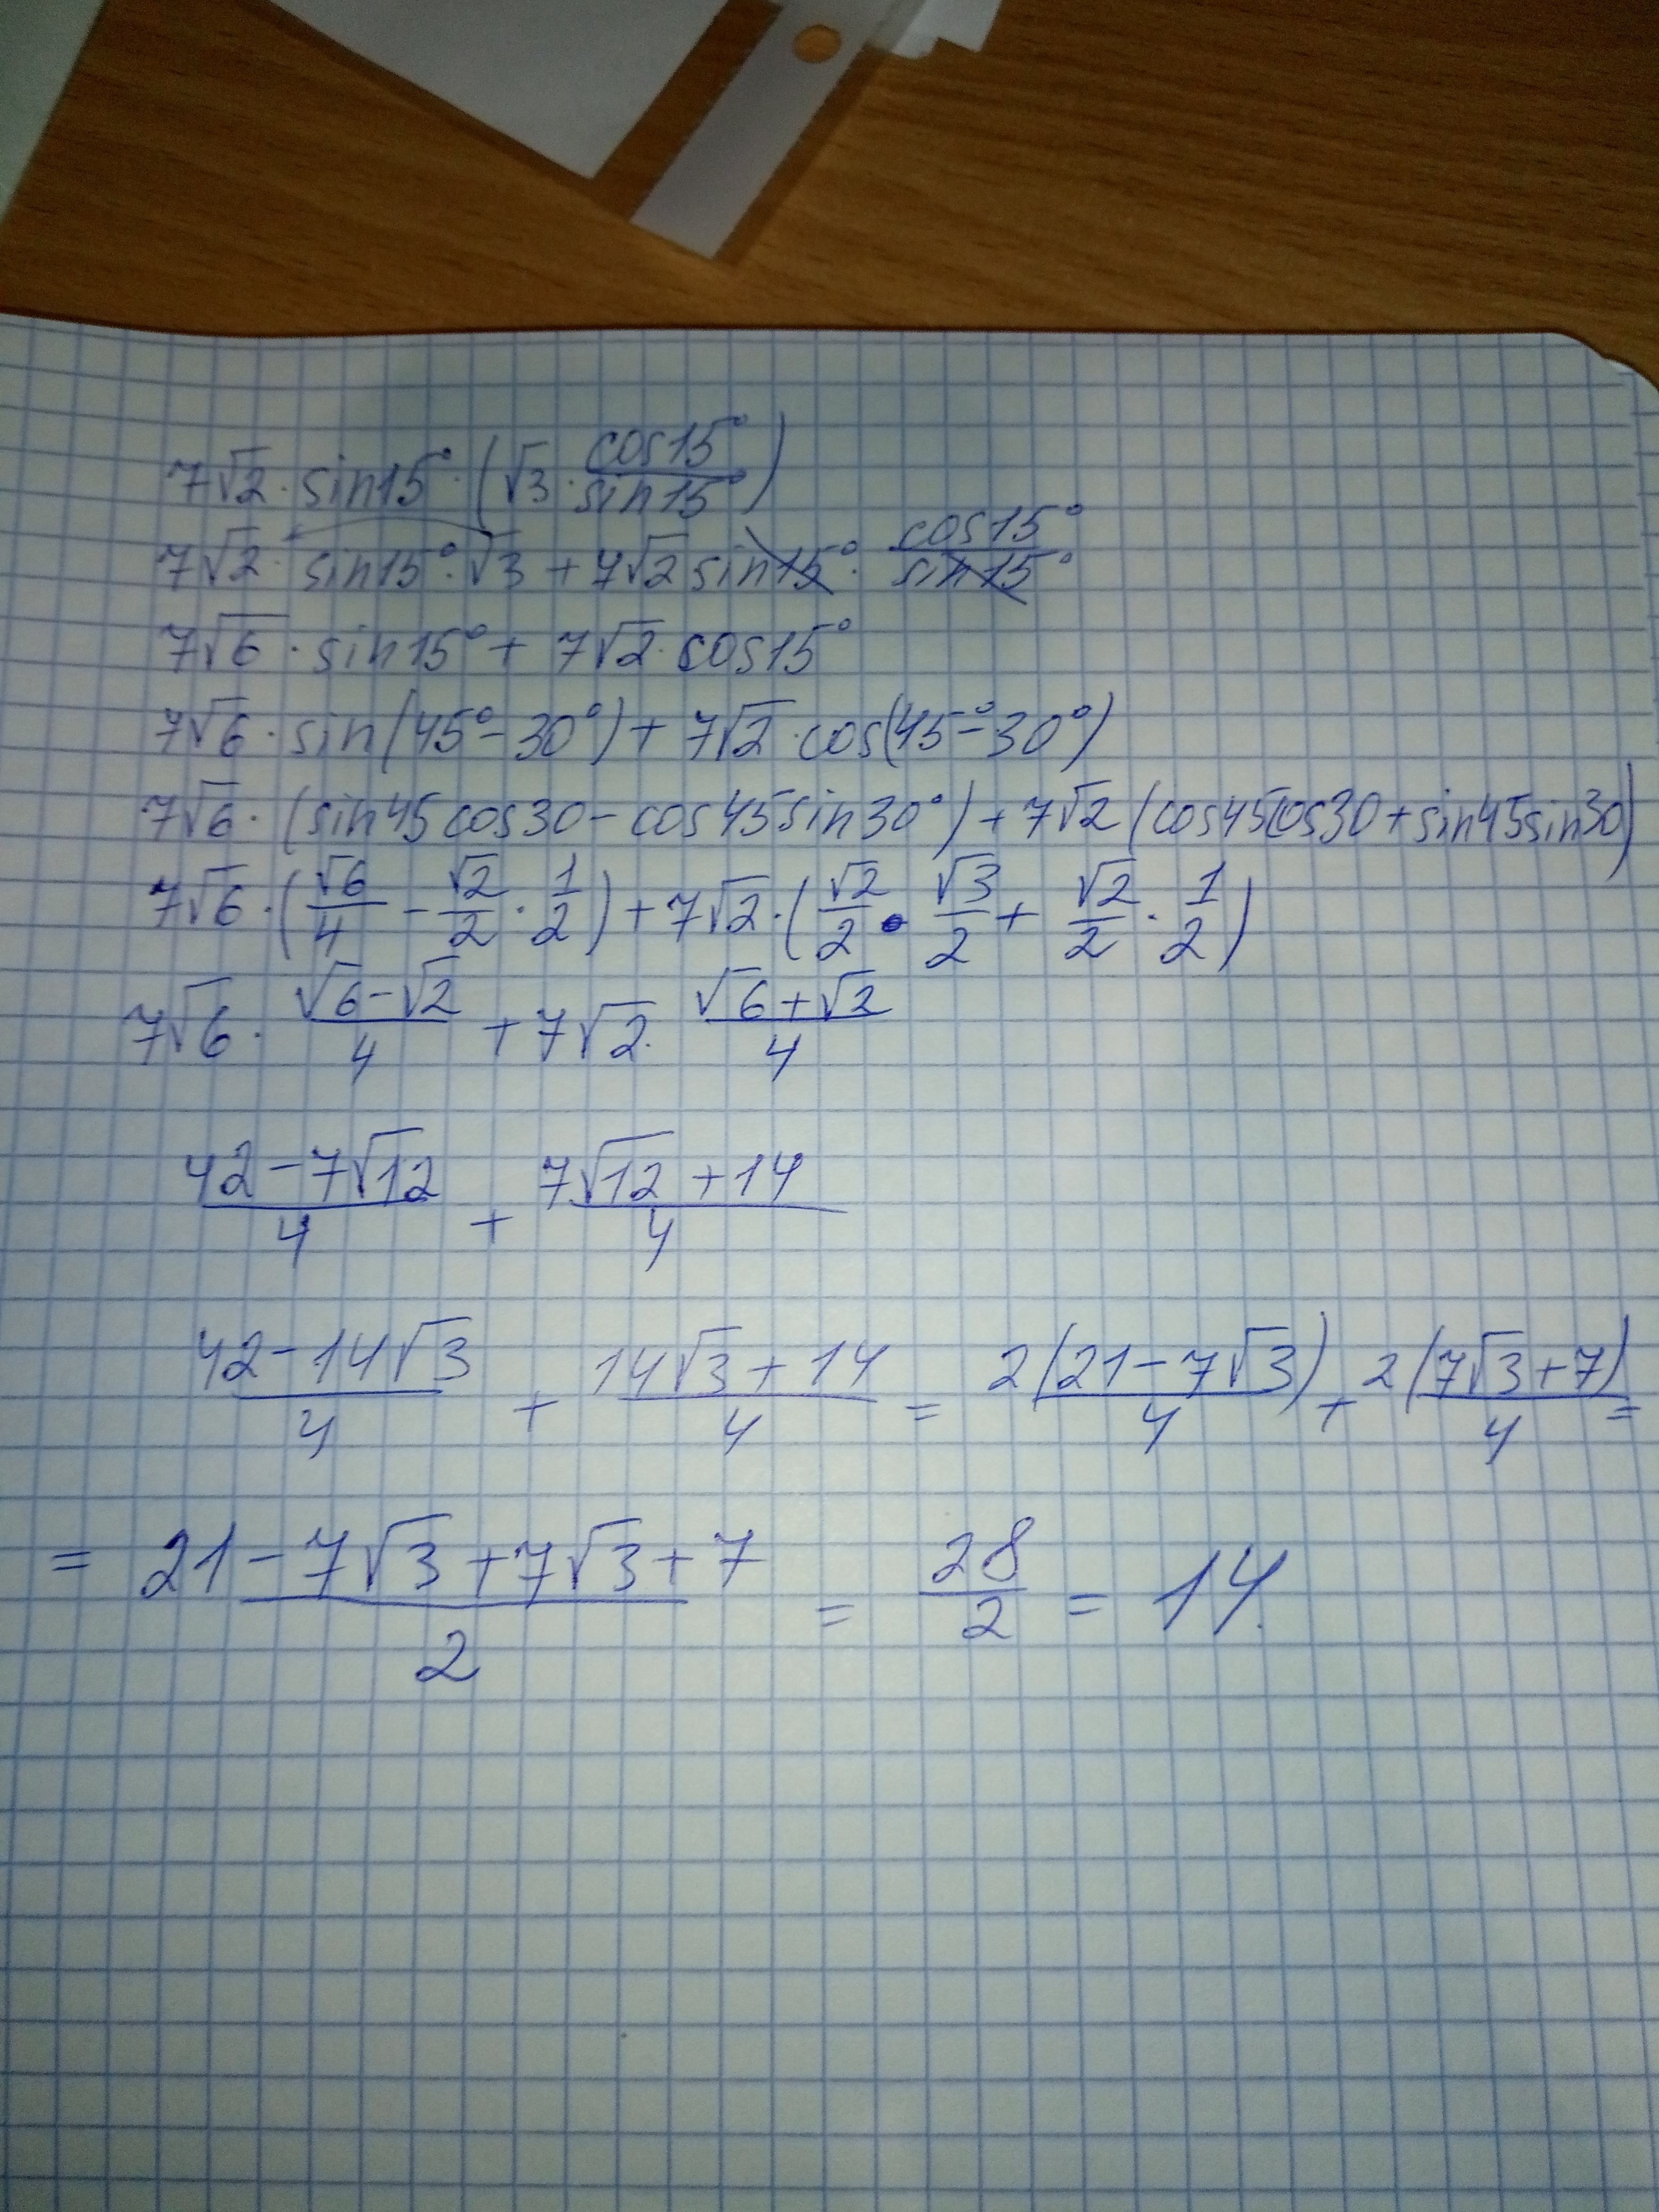 7√2 · sin15° · (√3 · cos15°/sin15°)
7√2 · sin15° · √3 + 7√2 sin15° · cos15°/sin15°
7√6 · sin15° + 7√2 · cos15°
7√6 · sin(45° − 30°) + 7√2 · cos(45° − 30°)
7√6 · (sin45 cos30 − cos45 sin30°) + 7√2 (cos45cos30 + sin45sin30)
7√6 · (√6/4 − √2/2 · 1/2) + 7√2 · (√2/2 · √3/2 + √2/2 · 1/2)
7√6 · (√6−√2)/4 + 7√2 · (√6+√2)/4
(42−7√12)/4 + (7√12+14)/4
(42−14√3)/4 + (14√3+14)/4 = 2(21−7√3)/4 + 2(7√3+7)/4 =
= (21−7√3+7√3+7)/2 = 28/2 = 14.